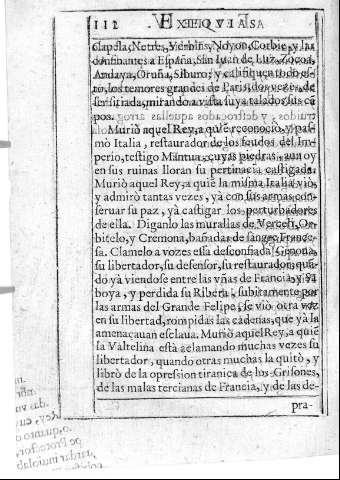 112 EXEQVIAS
clapela, Netres, Yierbins, Noyon, Corbie, y las
confinantes a España, San Iuan de Luz, Zocoa,
Andaya, Oruña, Siburo; y califiquen todo es-
to, los temores grandes de Paris, dos vezes, de
ser sitiada, mirando a vista suya talados sus cã
pos.
Muriò aquel Rey, a quiẽ reconociò, y pas-
mò Italia, restaurador de los feudos del Im-
perio, testigo Mantua, cuyas piedras, aun oy
en sus ruinas lloran su pertinacia castigada.
Muriò aquel Rey, a quiẽ la misma Italia viò,
y admirò tantas vezes, yà con sus armas con-
seruar su paz, yà castigar los perturbadores
de ella. Diganlo las murallas de Verceli, Or-
bitelo, y Cremona, bañadas de sangre France-
sa. Clamelo a vozes essa desconfiada Genoua,
su libertador, su defensor, su restaurador; quã-
do yà viendose entre las vñas de Francia, y Sa
boya, y perdida su Ribera, subitamente por
las armas del Grande Felipe, se viò otra vez
en su libertad, rompidas las cadenas, que yà la
amenaçauan esclaua. Muriò aquel Rey, a quiẽ
la Valtelina està aclamando muchas vezes su
libertador, quando otras muchas la quitò, y
librò de la opresion tiranica de los Grisones,
de las malas tercianas de Francia, y de las de-
pra-